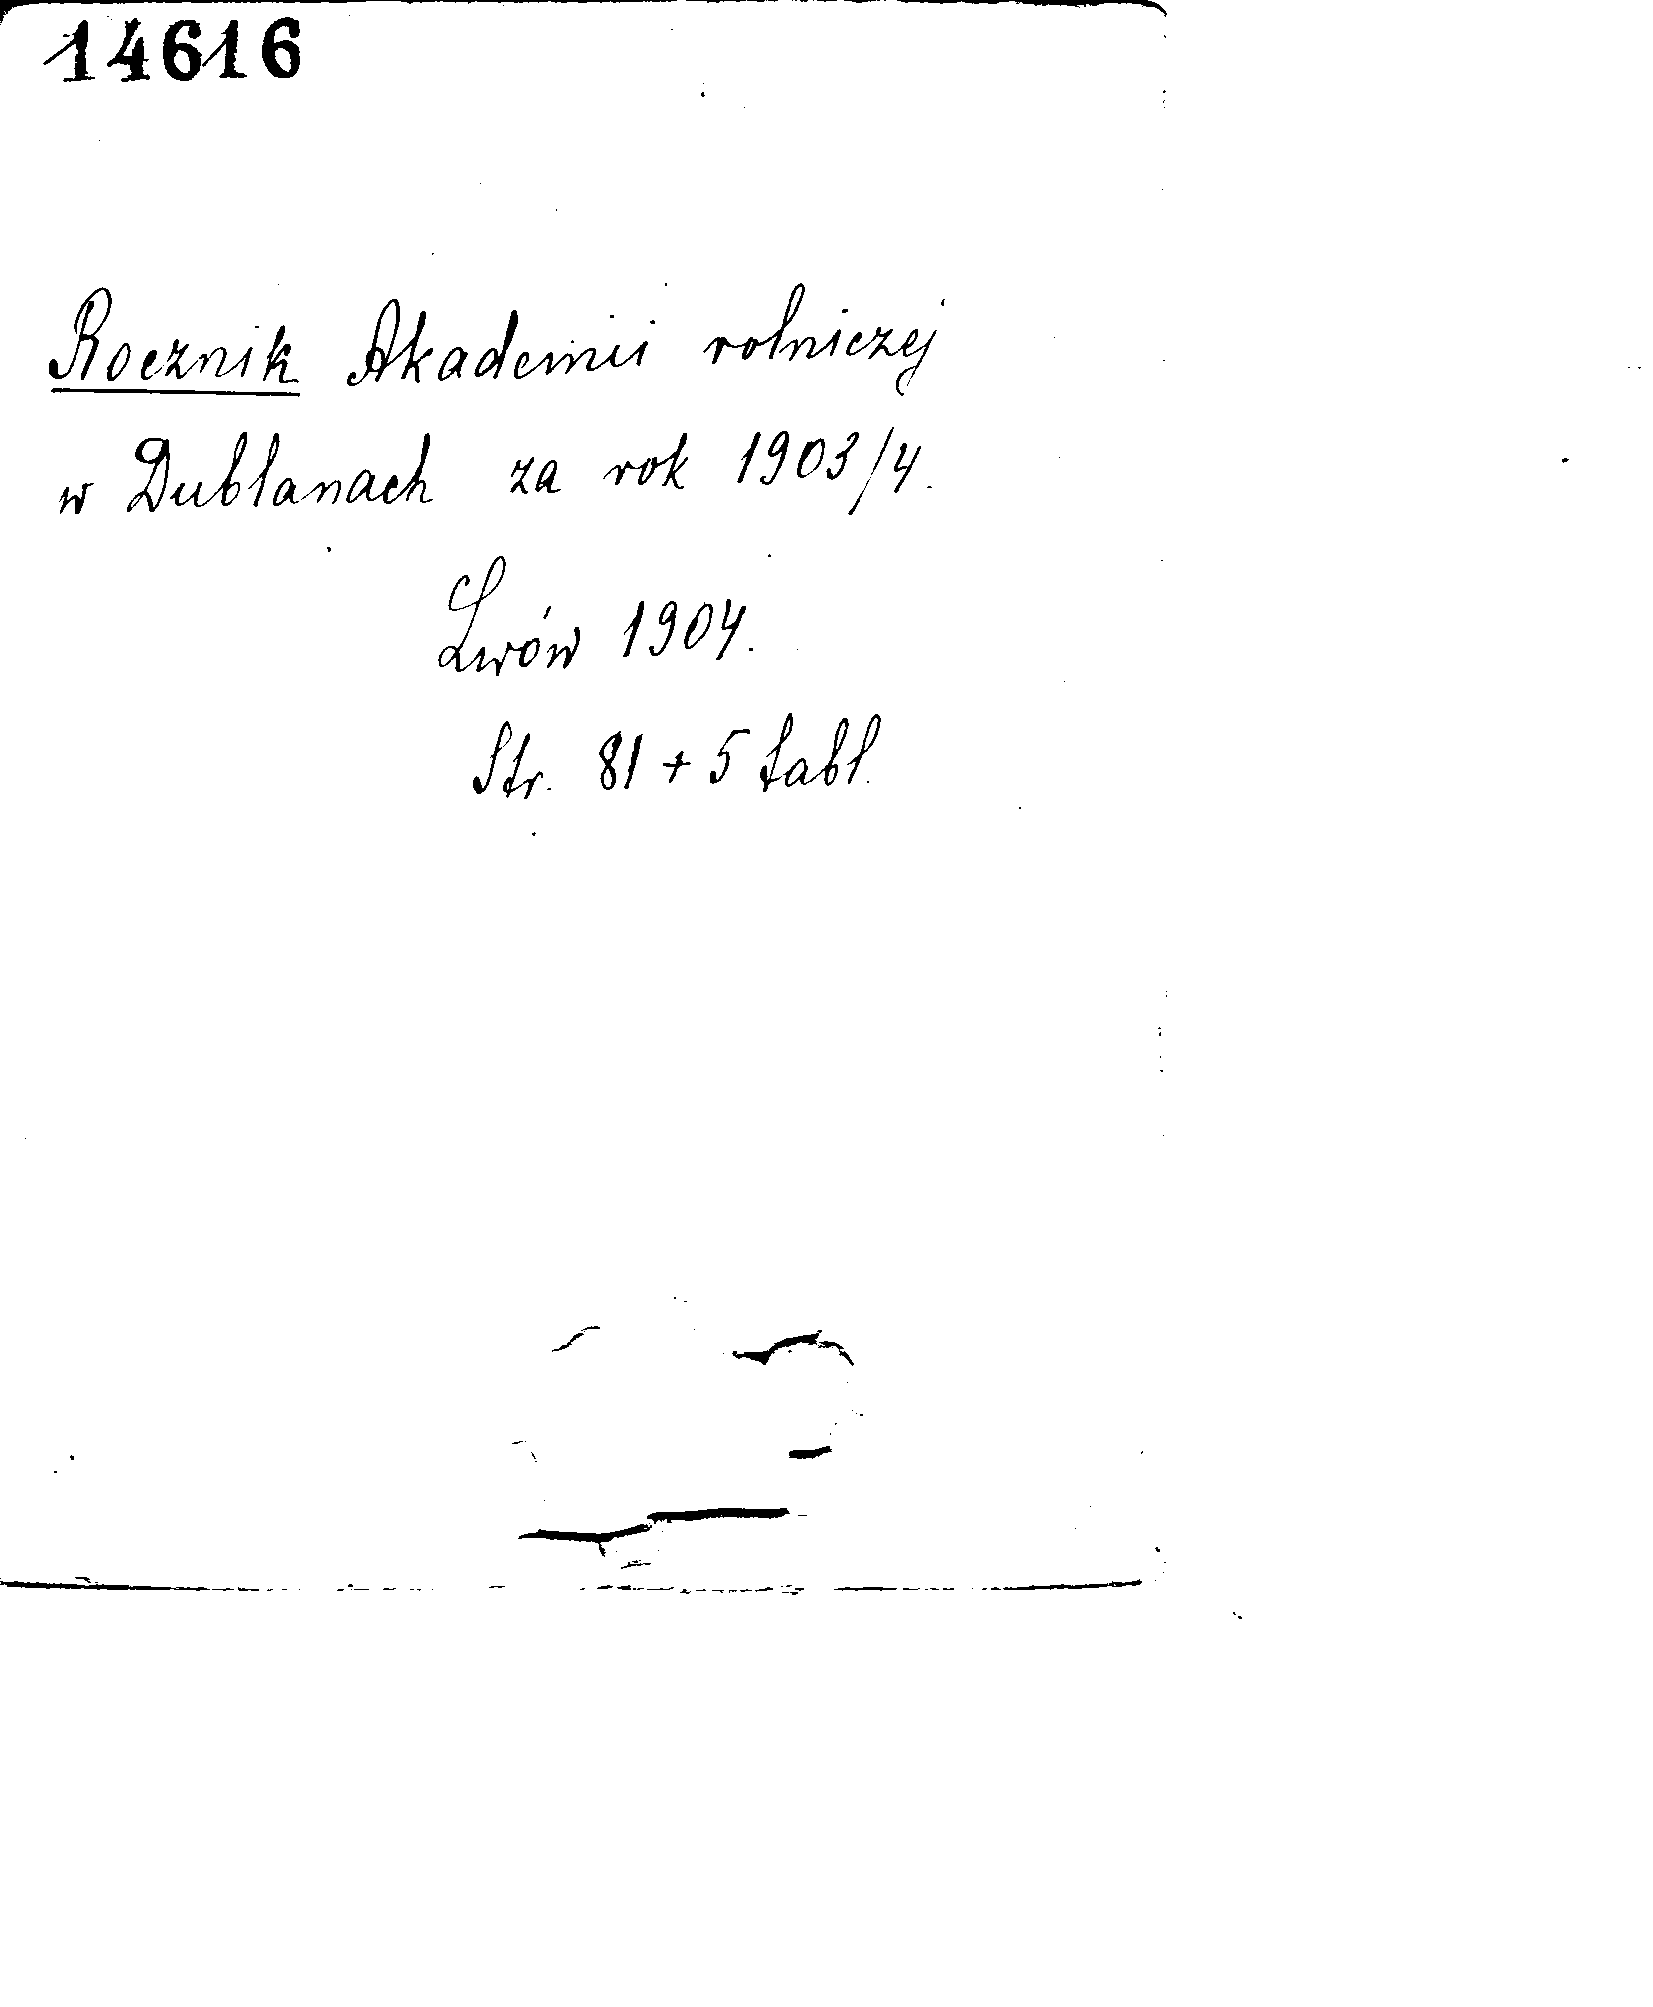 14616
Rocznik Akademii rolniczej
w Dublanach za rok 1903/4.
Lwów 1904.
Str. 81 + 5 tabl.